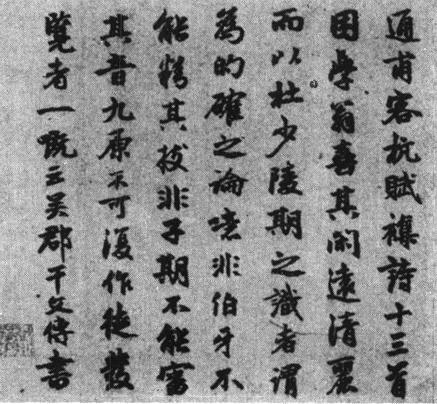 通甫客杭賦襍詩十三首
困學翁喜其閑遠清麗
而以杜少陵期之識者謂
為的確之論噫非伯牙不
能精其技非子期不能審
其音九原不可復作徒發
覽者一嘅云吳郡干文傳書